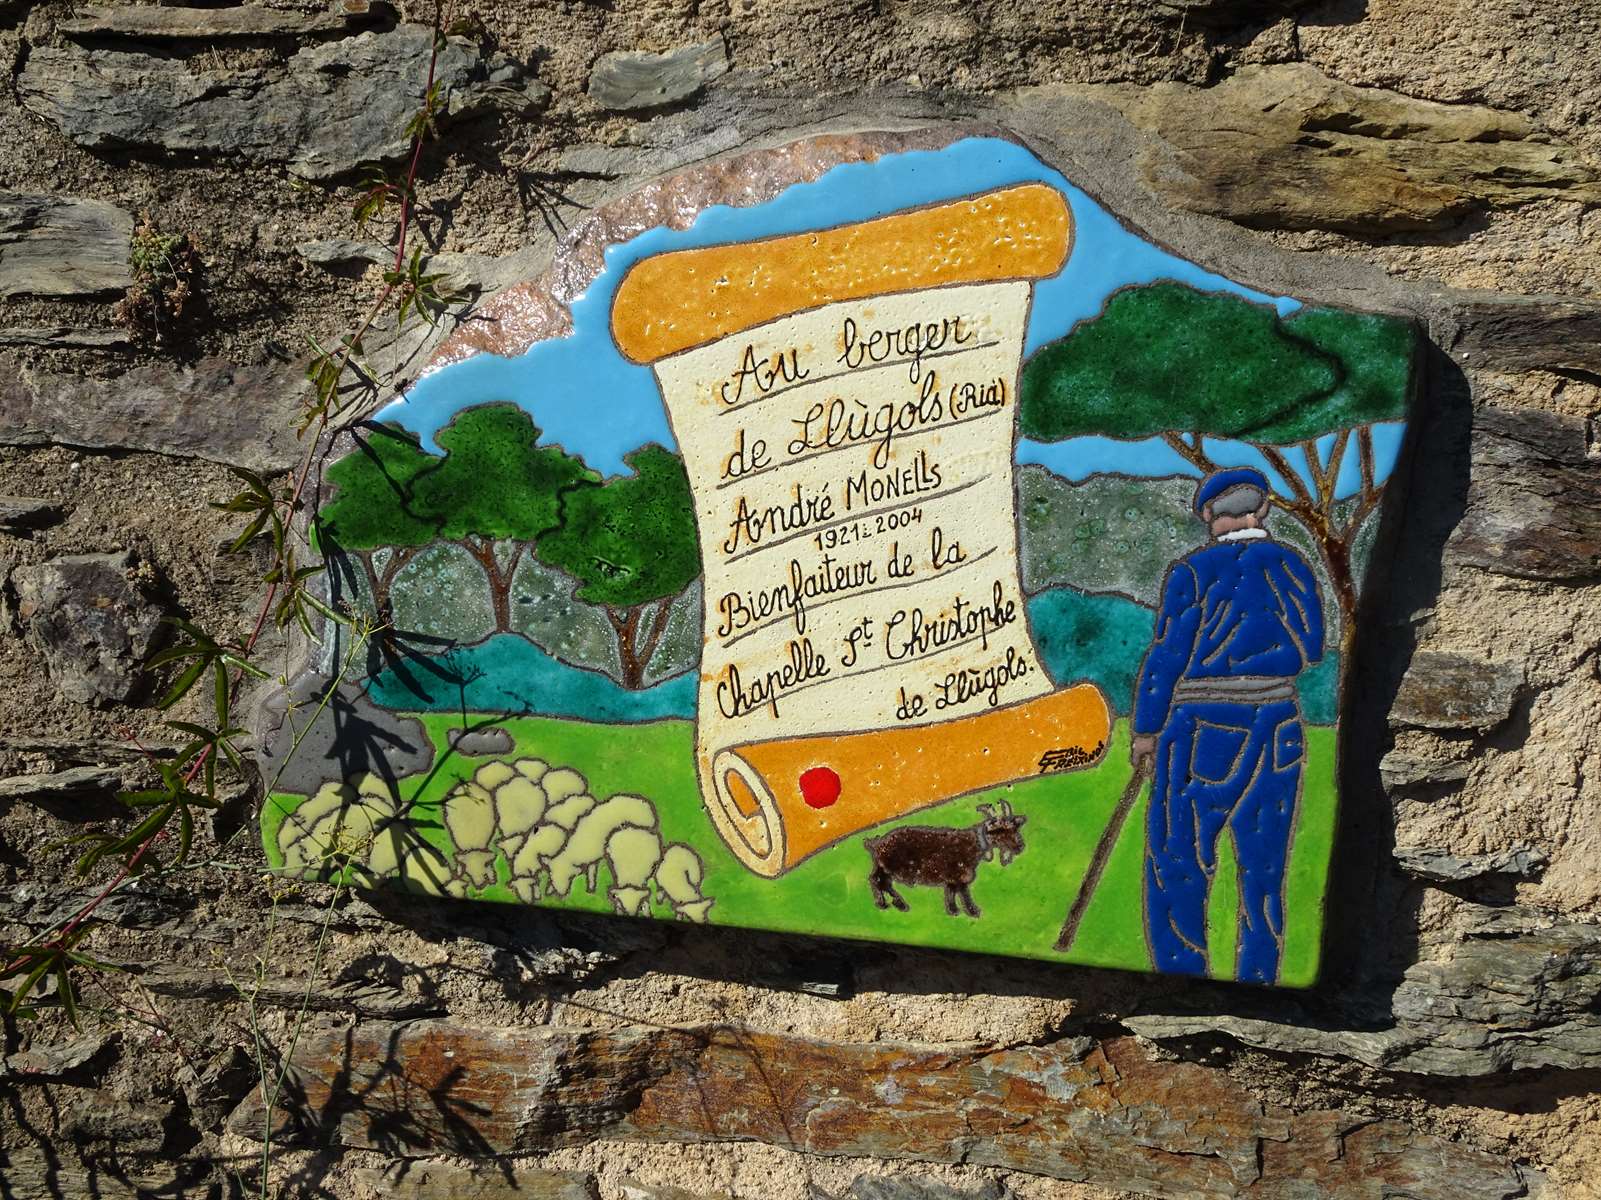 Au berger
de Llùgols (Rià)
André MONELLS
1921-2004
Bienfaiteur de la
Chapelle St Christophe
de Llùgols.